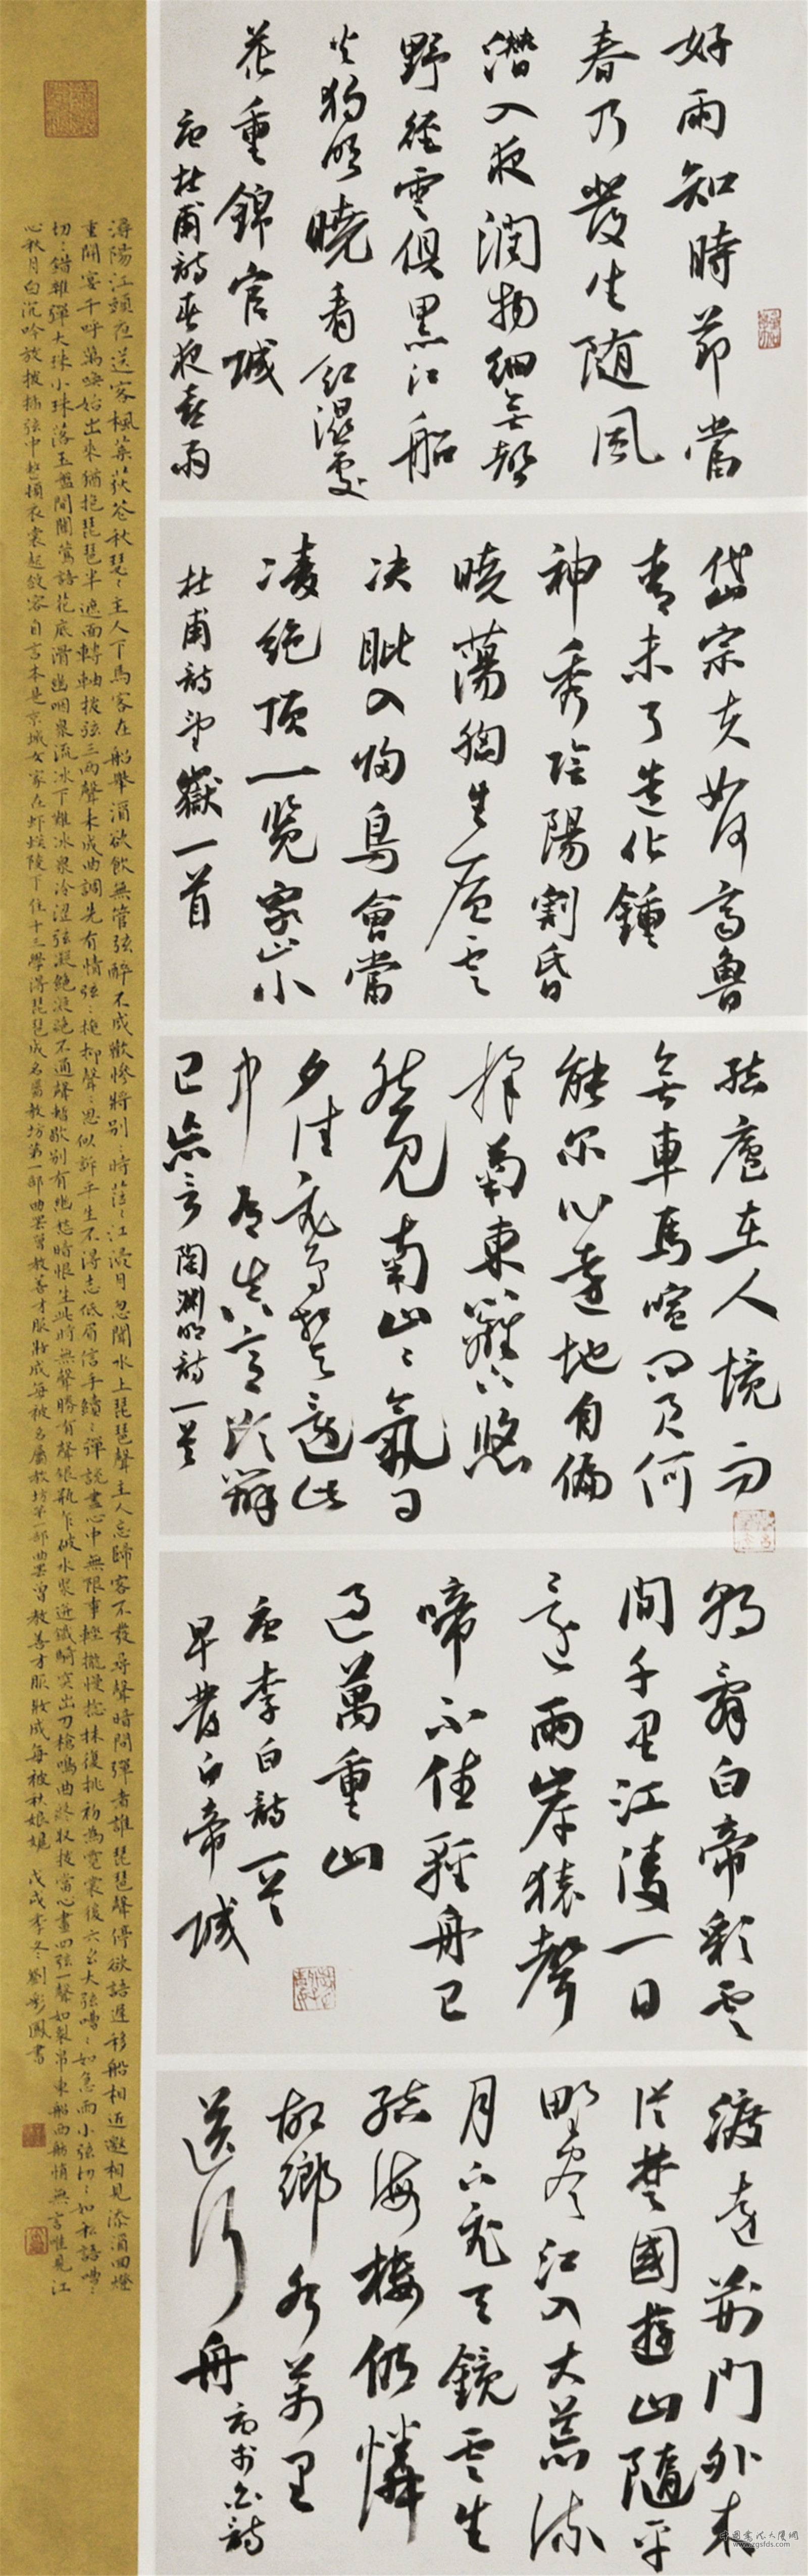 好雨知時節當
春乃發生随風
潛入夜潤物細無聲
野徑雲俱黑江船
火獨明曉看紅濕處
花重錦官城
唐杜甫詩春夜喜雨
岱宗夫如何齊魯
青未了造化鍾
神秀陰陽割昏
曉蕩胸生層雲
決眦入歸鳥會當
凌絕頂一覽眾山小
杜甫詩望嶽一首
結廬在人境而
無車馬喧問君何
能爾心遠地自偏
採菊東籬下悠
然見南山々氣日
夕佳飛鳥相與還此
中有真意欲辯
已忘言陶淵明詩一首
朝辭白帝彩雲
間千里江陵一日
還兩岸猿聲
啼不住輕舟已
過萬重山
唐李白詩一首
早發白帝城
渡遠荊門外來
從楚國遊山隨平
野盡江入大荒流
月下飛天鏡雲生
結海樓仍憐
故鄉水萬里
送行舟唐李白詩
潯陽江頭夜送客楓葉荻花秋瑟々主人下馬客在船舉酒欲飲無管弦醉不成歡慘將別々時茫々江浸月忽聞水上琵琶聲主人忘歸客不發尋聲暗問彈者誰琵琶聲停欲語遲移船相近邀相見添酒回燈
重開宴千呼萬喚始出來猶抱琵琶半遮面轉軸撥弦三兩聲未成曲調先有情弦々掩抑聲々思似訴平生不得志低眉信手續々彈說盡心中無限事輕攏慢撚抹復挑初為霓裳後六幺大弦嘈々如急雨小弦切々如私語嘈々
切々錯雜彈大珠小珠落玉盤間關鶯語花底滑幽咽泉流冰下難冰泉冷澀弦凝絕凝絕不通聲暫歇別有幽愁暗恨生此時無聲勝有聲銀瓶乍破水漿迸鐵騎突出刀槍鳴曲終收撥當心畫四弦一聲如裂帛東船西舫悄無言唯見江
心秋月白沉吟放撥插弦中整頓衣裳起斂容自言本是京城女家在蝦蟆陵下住十三學得琵琶成名屬教坊第一部曲罷曾教善才服妝成每被名屬教坊第一部曲罷曾教善才服妝成每被秋娘妒 戊戌季冬劉彩鳳書
中國書法大厦網
www.zgsfds.com